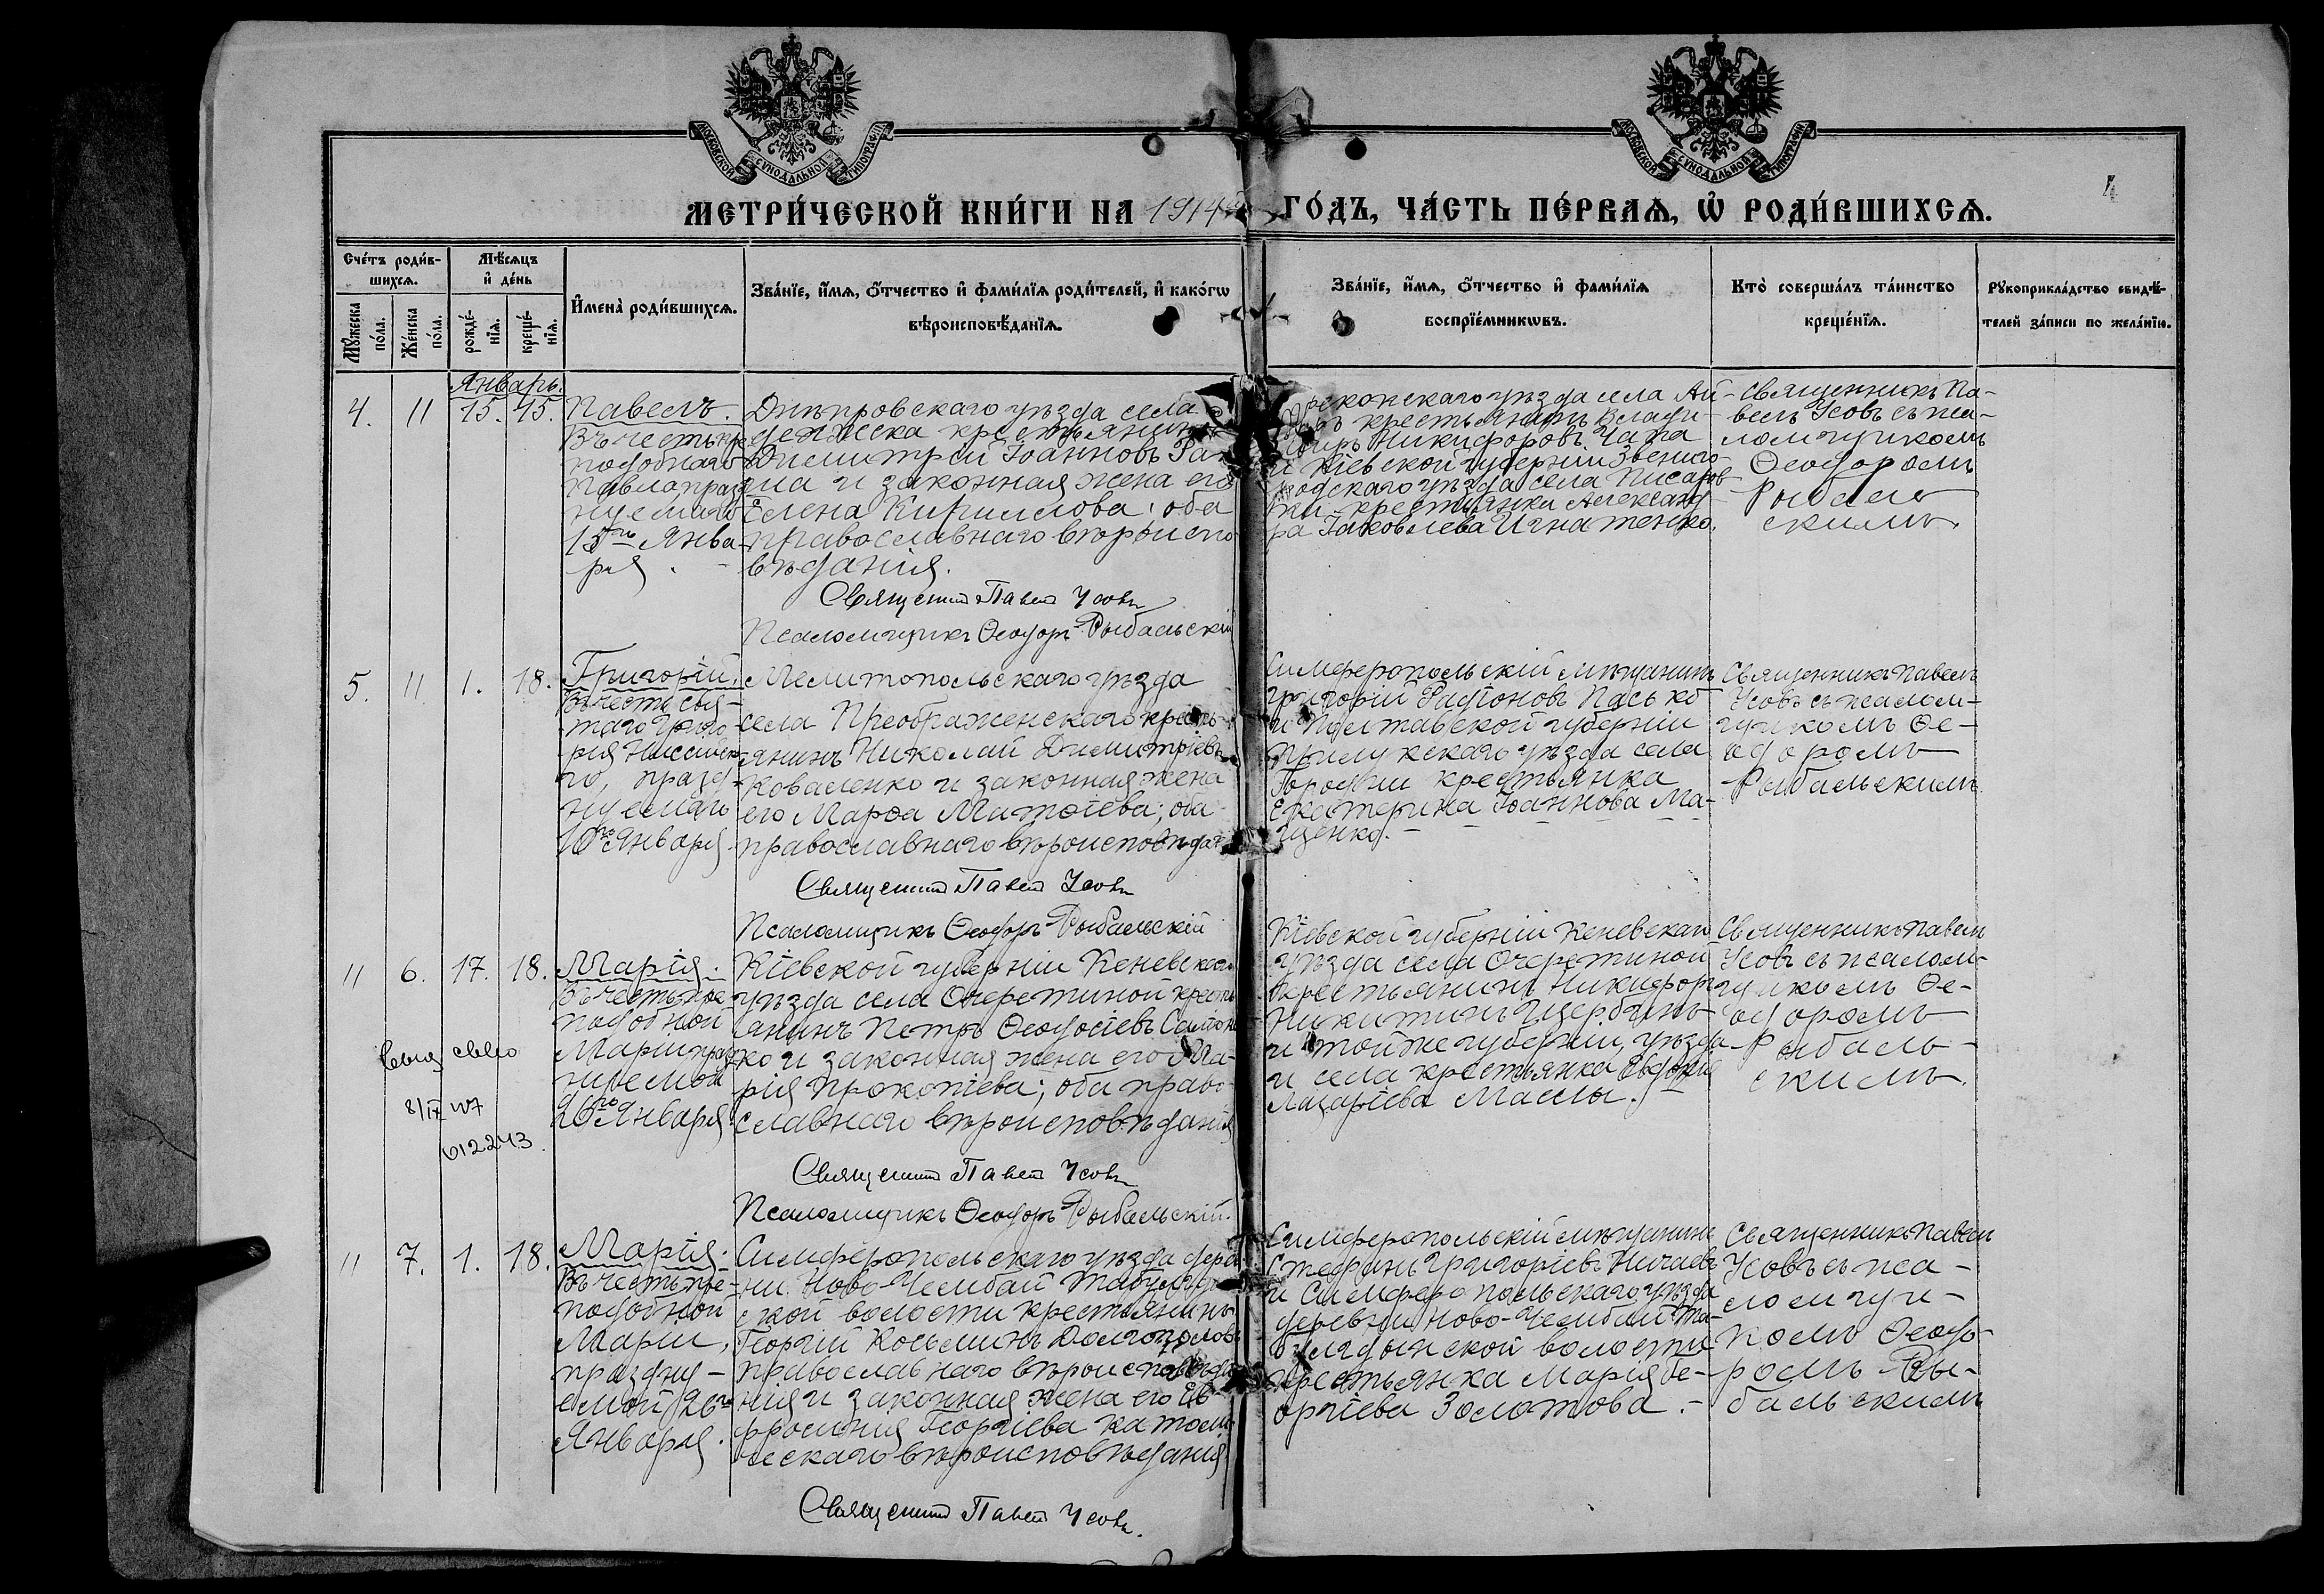 МОСКОВСКОЙ СѴНОДАЛЬНОЙ ТИПОГРАФІИ
МОСКОВСКОЙ СѴНОДАЛЬНОЙ ТИПОГРАФІИ
МЕТРИ́ЧЕСКОЙ КНИ́ГИ НА 1914й ГО́ДЪ, ЧА́СТЬ ПЕ́РВАѦ, Ѡ҆ РОДИ́ВШИХСѦ.
4
Сче́тъ роди́в-
шихсѧ.
Мꙋ́жеска по́ла.
Же́нска по́ла.
Мѣ́сѧцъ
и҆ де́нь
рожде́-
нїѧ.
креще́-
нїѧ.
И҆мена̀ роди́вшихсѧ.
Зва́нїе, и҆́мѧ, ѻ҆́тчество и҆ фами́лїѧ роди́телей, и҆ како́гѡ
вѣроисповѣ́данїѧ.
Зва́нїе, и҆́мѧ, ѻ҆́тчество и҆ фами́лїѧ
воспрїе́мникѡвъ.
Кто̀ соверша́лъ та́инство
креще́нїѧ.
Рꙋкоприкла́дство свидѣ́-
телей за́писи по жела́нїю.
Январь.
4. 11 15. 15.
Павелъ.
Въ честь пре
подобнаго
Павла праз
нуемаго
15го Янва-
ря.
Днѣпровскаго уѣзда села
крестьянинъ
Димитрій Іоанновъ Га-
и законная жена его
Елена Кириллова; оба
православнаго вѣроиспо
вѣданія.
Священникъ Павелъ Усовъ
Псаломщикъ Ѳеодоръ Рыбальскій
уѣзда села Ай-
крестьянинъ Влади-
міръ Никифоровъ Чапа
и Кіевской губерніи Звениго-
родскаго уѣзда села Писаров
ки крестьянка Александ
ра Іаковлева Игнатенко.
Священникъ Па-
велъ Усовъ съ пса-
ломщикомъ
Ѳеодоромъ
Рыбаль
скимъ.
5. 11 1. 18.
Григорій.
Въ честь свя-
таго Григо-
рія Нисска
го, празд-
нуемаго
10го Января.
Мелитопольскаго уѣзда
села Преображенскаго кресть-
янинъ Николай Димитріевъ
Коваленко и законная жена
его Марѳа Матѳіева; оба
православнаго вѣроисповѣда-
Священникъ Павелъ Усовъ
Псаломщикъ Ѳеодоръ Рыбальскій
Симферопольскій мѣщанинъ
Григорій Пасько
и Полтавской губерніи
Прилукскаго уѣзда села
крестьянка
Екатерина Іоаннова Ма-
щенко.
Священникъ Павелъ
Усовъ съ псалом-
щикомъ Ѳе-
одоромъ
Рыбальскимъ
11 6. 17. 18.
Марія.
Въ честь пре
подобной
Маріи праз
нуемой
26го Января.
8/IX
012243.
Кіевской губерніи Каневскаго
уѣзда села Очеретиной кресть
янинъ Петръ Ѳеодосіевъ
ко и законная жена его Ма-
рія Прокопіева; оба право-
славнаго вѣроисповѣданія
Священникъ Павелъ Усовъ
Псаломщикъ Ѳеодоръ Рыбальскій.
Кіевской губерніи Каневскаго
уѣзда села Очеретиной
крестьянинъ Никифоръ
Никитинъ Щербина
и той же губерніи, уѣзда
и села крестьянка
Лазарева
Священникъ Павелъ
Усовъ съ псалом-
щикомъ Ѳе-
одоромъ
Рыбаль-
скимъ.
11 7. 1. 18.
Марія.
Въ честь пре-
подобной
Маріи,
праздну-
емой 26го
Января.
Симферопольскаго уѣзда дерев
ни Ново-Челебай Табулды
ской волости крестьянинъ
Георгій Косьминъ Долгополовъ
православнаго вѣроисповѣда
нія и законная жена его Ев
фросинія Георгіева католи
ческаго вѣроисповѣданія
Священникъ Павелъ Усовъ.
Симферопольскій мѣщанинъ
Стефанъ Григоріевъ
и Симферопольскаго уѣзда
деревни Ново-Челебай Та-
булдынской волости
крестьянка Марія Ге-
оргіева Золотова.
Священникъ Павелъ
Усовъ съ пса-
ломщи-
комъ Ѳеодо-
ромъ Ры-
бальскимъ